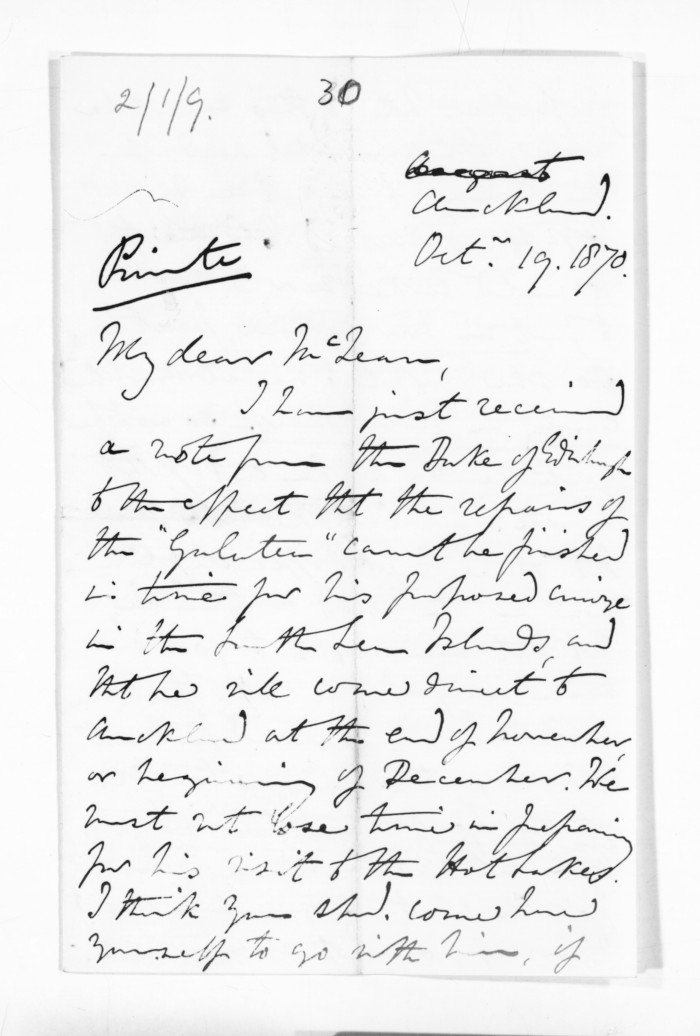 2/1/9.
30
August
Auckland.
Octr. 19. 1870.
Private
My dear McLean,
I have just received
a note from the Duke of Edinburgh
to the effect tht the repairs of
the "Galatea" cannot be finished
in time for his proposed cruize
in the South Sea Islands, and
tht he will come direct to
Auckland at the end of November,
or beginning of December. We
must not lose time in preparing
for his visit to the Hot Lakes.
I think you shd. come here
yourself to go with him, if